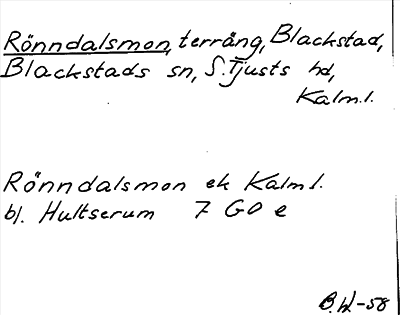 Rönndalsmon, terräng, Blackstad,
Blackstads sn, S. Tjusts hd,
Kalm.l.
Rönndalsmon ek Kalm l.
bl. Hultserum 7 G0 e
B.H-58